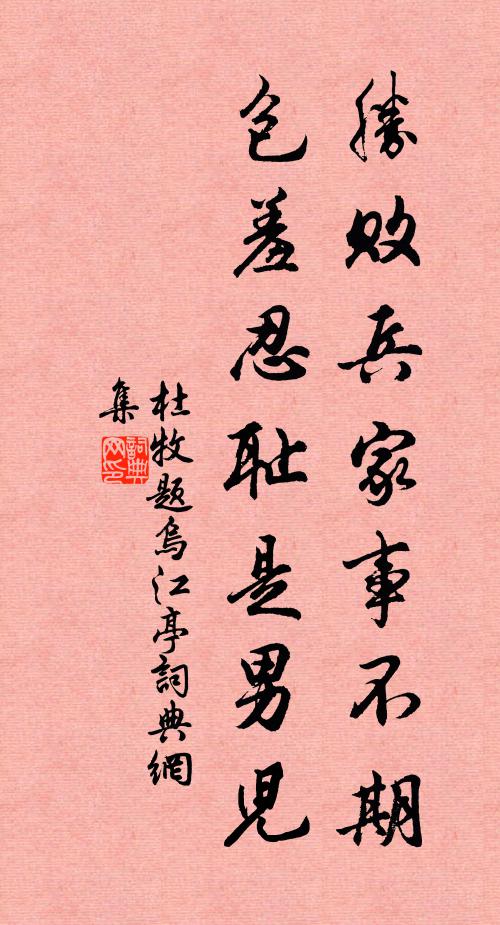 勝敗兵家事不期
包羞忍耻是男兒
杜牧題烏江亭詞典網
集
詞典
网印